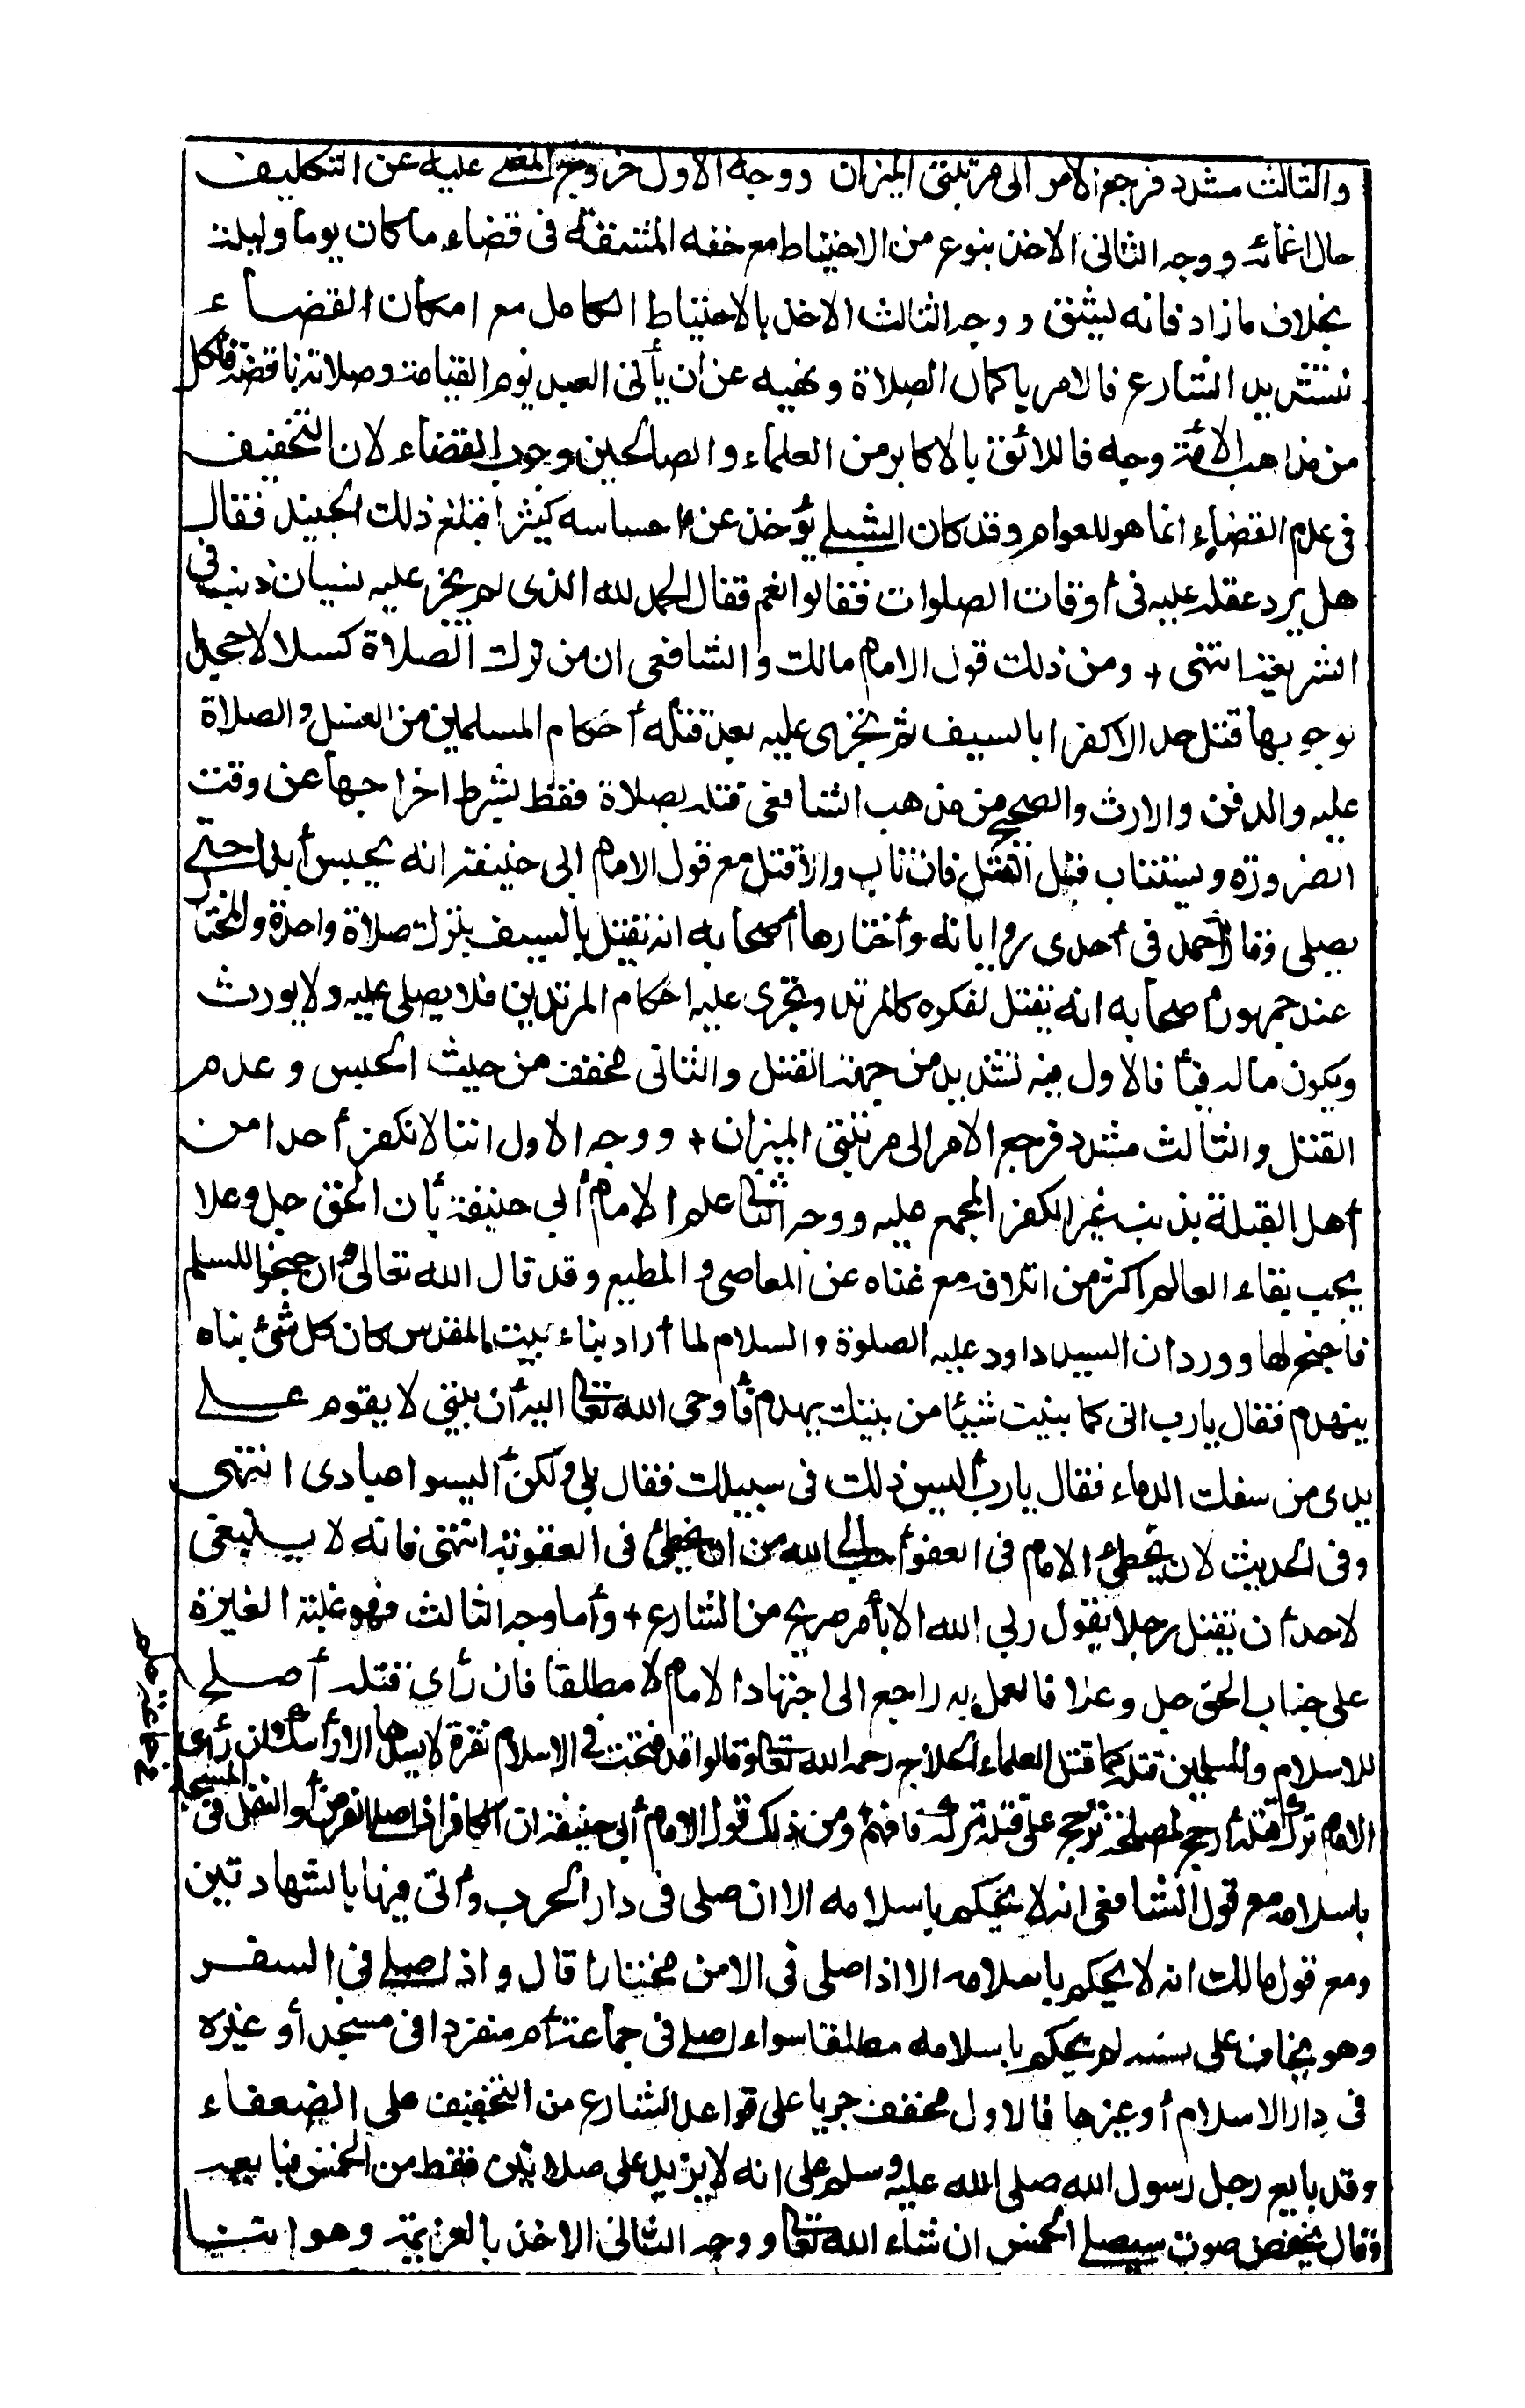 والثالث مشدد فرجع الامر الى مرتبتى الميزان ووجه الاول خروج المغمى عليه عن التكليف
حال اغمائه ووجه الثانى الاخذ بنوع من الاحتياط مع خفه المشقة فى قضاء ماكان يوما وليلة
بخلاف مازاد فانه يشق ووجه الثالث الاخذ بالاحتياط الكامل مع امكان القضاء
تشديد الشارع فالامر باكمال الصلاة ونهيه عن ان يأتى العبد يوم القيامة وصلاته ناقصة فلكل
من مذاهب الائمة وجه فاللائق بالاكابر من العلماء والصالحين وجوب القضاء لان التخفيف
فى عدم القضاء انما هو للعوام وقد كان الشبلى يؤخذ عن احساسه كثيرا فبلغ ذلك الجنيد فقال
هل يرد عقله عليه فى أوقات الصلوات فقالوا نعم فقال الحمد لله الذى لم يجر عليه لسان ذنب فى
الشريعة انتهى + ومن ذلك قول الامام مالك والشافعى ان من ترك الصلاة كسلا لا جحدا
لوجوبها قتل حدا لاكفرا بالسيف ثم تجرى عليه بعد قتله أحكام المسلمين من الغسل والصلاة
عليه والدفن والارث والصحيح من مذهب الشافعى قتله بصلاة فقط بشرط اخراجها عن وقت
الضرورة ويستتاب قبل القتل فان تاب والا قتل مع قول الامام ابى حنيفة انه يحبس أبدا حتى
يصلى وقال أحمد فى أحدى رواياته وأختارها أصحابه انه يقتل بالسيف بترك صلاة واحدة والمختار
عند جمهور اصحابه انه يقتل لكفره كالمرتد وتجرى عليه احكام المرتدين فلا يصلى عليه ولا يورث
ويكون ماله فيأ فالاول فيه تشديد من جهة القتل والثانى مخفف من حيث الحبس وعدم
القتل والثالث مشدد فرجع الامر الى مرتبتى الميزان + ووجه الاول اننا لانكفر أحدا من
أهل القبلة بذنب غير الكفر المجمع عليه ووجه الثانى علم الامام أبي حنيفة بأن الحق جل وعلا
يحب بقاء العالم اكثر من اتلافه مع غناه عن المعاصى والمطيع وقد قال الله تعالى وان جنحوا للسلم
فاجنح لها وورد ان السيد داود عليه الصلوة والسلام لما أراد بناء بيت المقدس كان كل شئ بناه
ينهدم فقال يارب انى كما بنيت شيئا من بيتك يهدم فأوحى الله تعالى اليه أن بيتي لا يقوم على
يدى من سفك الدماء فقال يارب أليس ذلك فى سبيلك فقال بلى ولكن أليسوا عبادى انتهى
وفى الحديث لان يخطئ الامام فى العفو أحب الى الله من ان يخطئ فى العقوبة انتهى فانه لا ينبغى
لاحد أن يقتل رجلا يقول ربي الله الا بأمر صريح من الشارع + وأما وجه الثالث فهو غلبة الغيرة
على جناب الحق جل وعلا فالعمل به راجع الى اجتهاد الامام لا مطلقا فان رأى قتله أصلح
للاسلام والمسلمين قتله كما قتل العلماء الحلاج رحمه الله تعالى وقالوا قد فتحت فى الاسلام ثغرة لا يسدها الا رأسك وان رأى
الامام ترك قتله أرجح لمصلحة ترجح على قتله تركه فافهم ومن ذلك قول الامام أبى حنيفة ان الكافر اذا صلى الفرض أو النفل فى
المسجد
باسلامه مع قول الشافعى انه لا يحكم باسلامه الا ان صلى فى دار الحرب وأتى فيها بالشهادتين
ومع قول مالك انه لا يحكم باسلامه الا اذا صلى فى الامن مختارا قال واذا صلى فى السفر
وهو يخاف على نفسه لم يحكم باسلامه مطلقا سواء صلى فى جماعة أم منفردا فى مسجد أو غيره
فى دار الاسلام أو غيرها فالاول مخفف جريا على قواعد الشارع من التخفيف على الضعفاء
وقد بايع رجل رسول الله صلى الله عليه وسلم على انه لا يزيد على صلاتين فقط من الخمس فبايعه
وقال بخفض صوت سيصلى الخمس ان شاء الله تعالى ووجه الثانى الاخذ بالعزيمة وهو اتيا